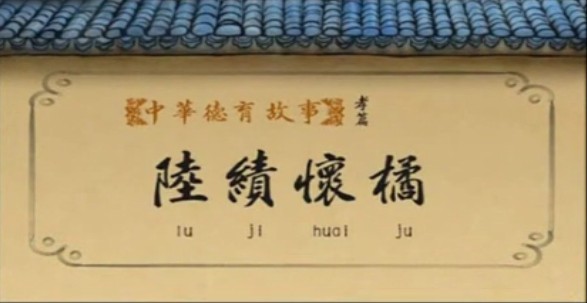 中華德育故事 孝篇
陸績懷橘
lu ji huai ju